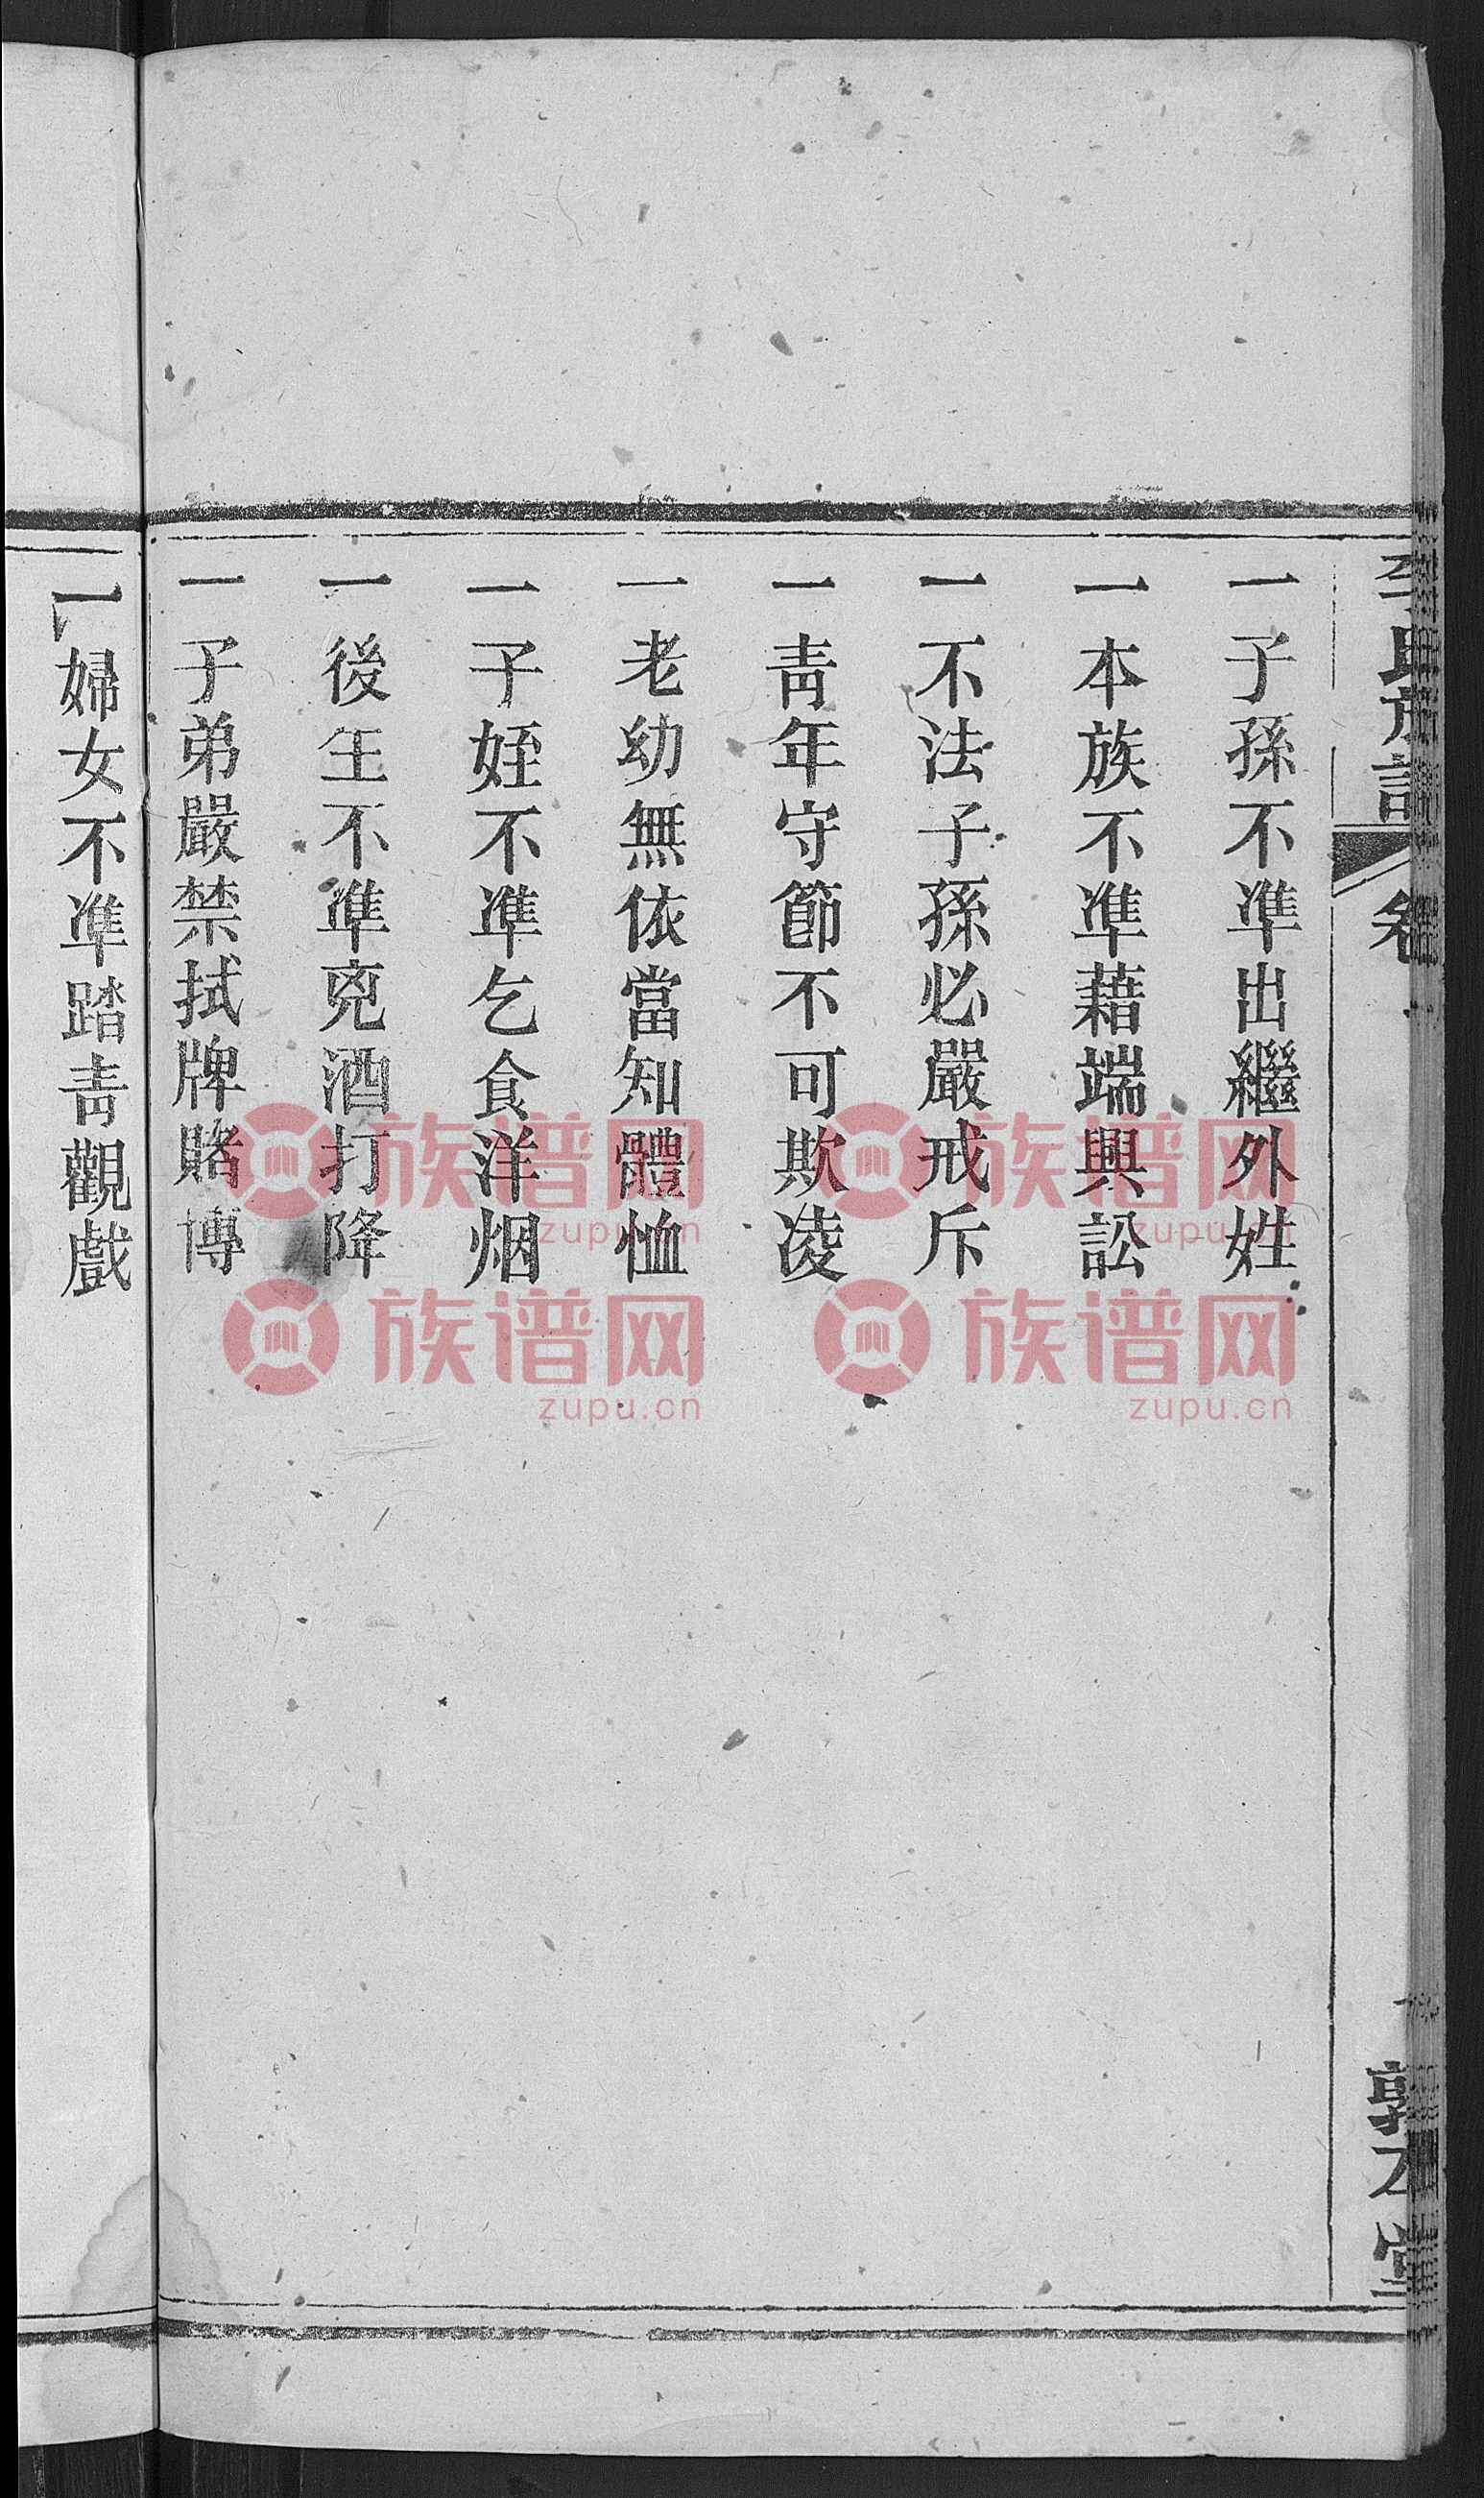 李氏族譜 卷
敦本堂
一子孫不準出繼外姓
一本族不準藉端興訟
一不法子孫必嚴戒斥
一靑年守節不可欺凌
一老幼無依當知體恤
一子姪不準乞食洋烟
一後生不準兇酒打降
一子弟嚴禁拭牌賭博
一婦女不準踏靑觀戲
族谱网
zupu.cn
族谱网
zupu.cn
族谱网
zupu.cn
族谱网
zupu.cn